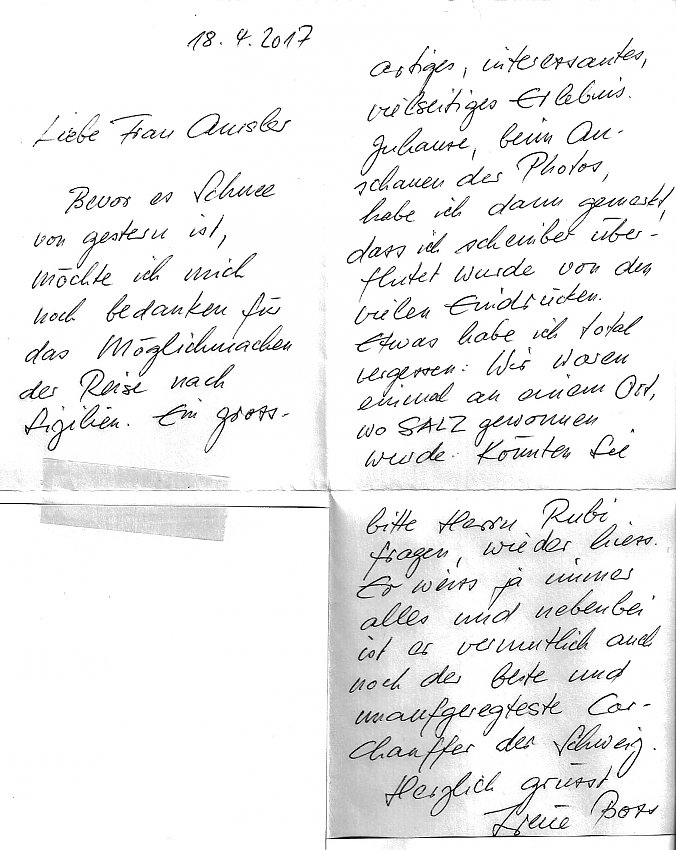 18.4.2017
Liebe Frau Amsler
Bevor es Schnee
von gestern ist,
möchte ich mich
noch bedanken für
das Möglichmachen
der Reise nach
Sizilien. Ein gross-
artiges, interessantes,
vielseitiges Erlebnis.
Zuhause, beim An-
schauen der Photos,
habe ich dann gemerkt,
dass ich scheinbar über-
flutet wurde von den
vielen Eindrücken.
Etwas habe ich total
vergessen: Wir waren
einmal an einem Ort,
wo SALZ gewonnen
wurde. Könnten Sie
bitte Herrn Rubi
fragen, wie der hiess.
Er weiss ja immer
alles und nebenbei
ist er vermutlich auch
noch der beste und
unaufgeregteste Car-
Chauffer der Schweiz.
Herzlich grüsst
Irene Boss